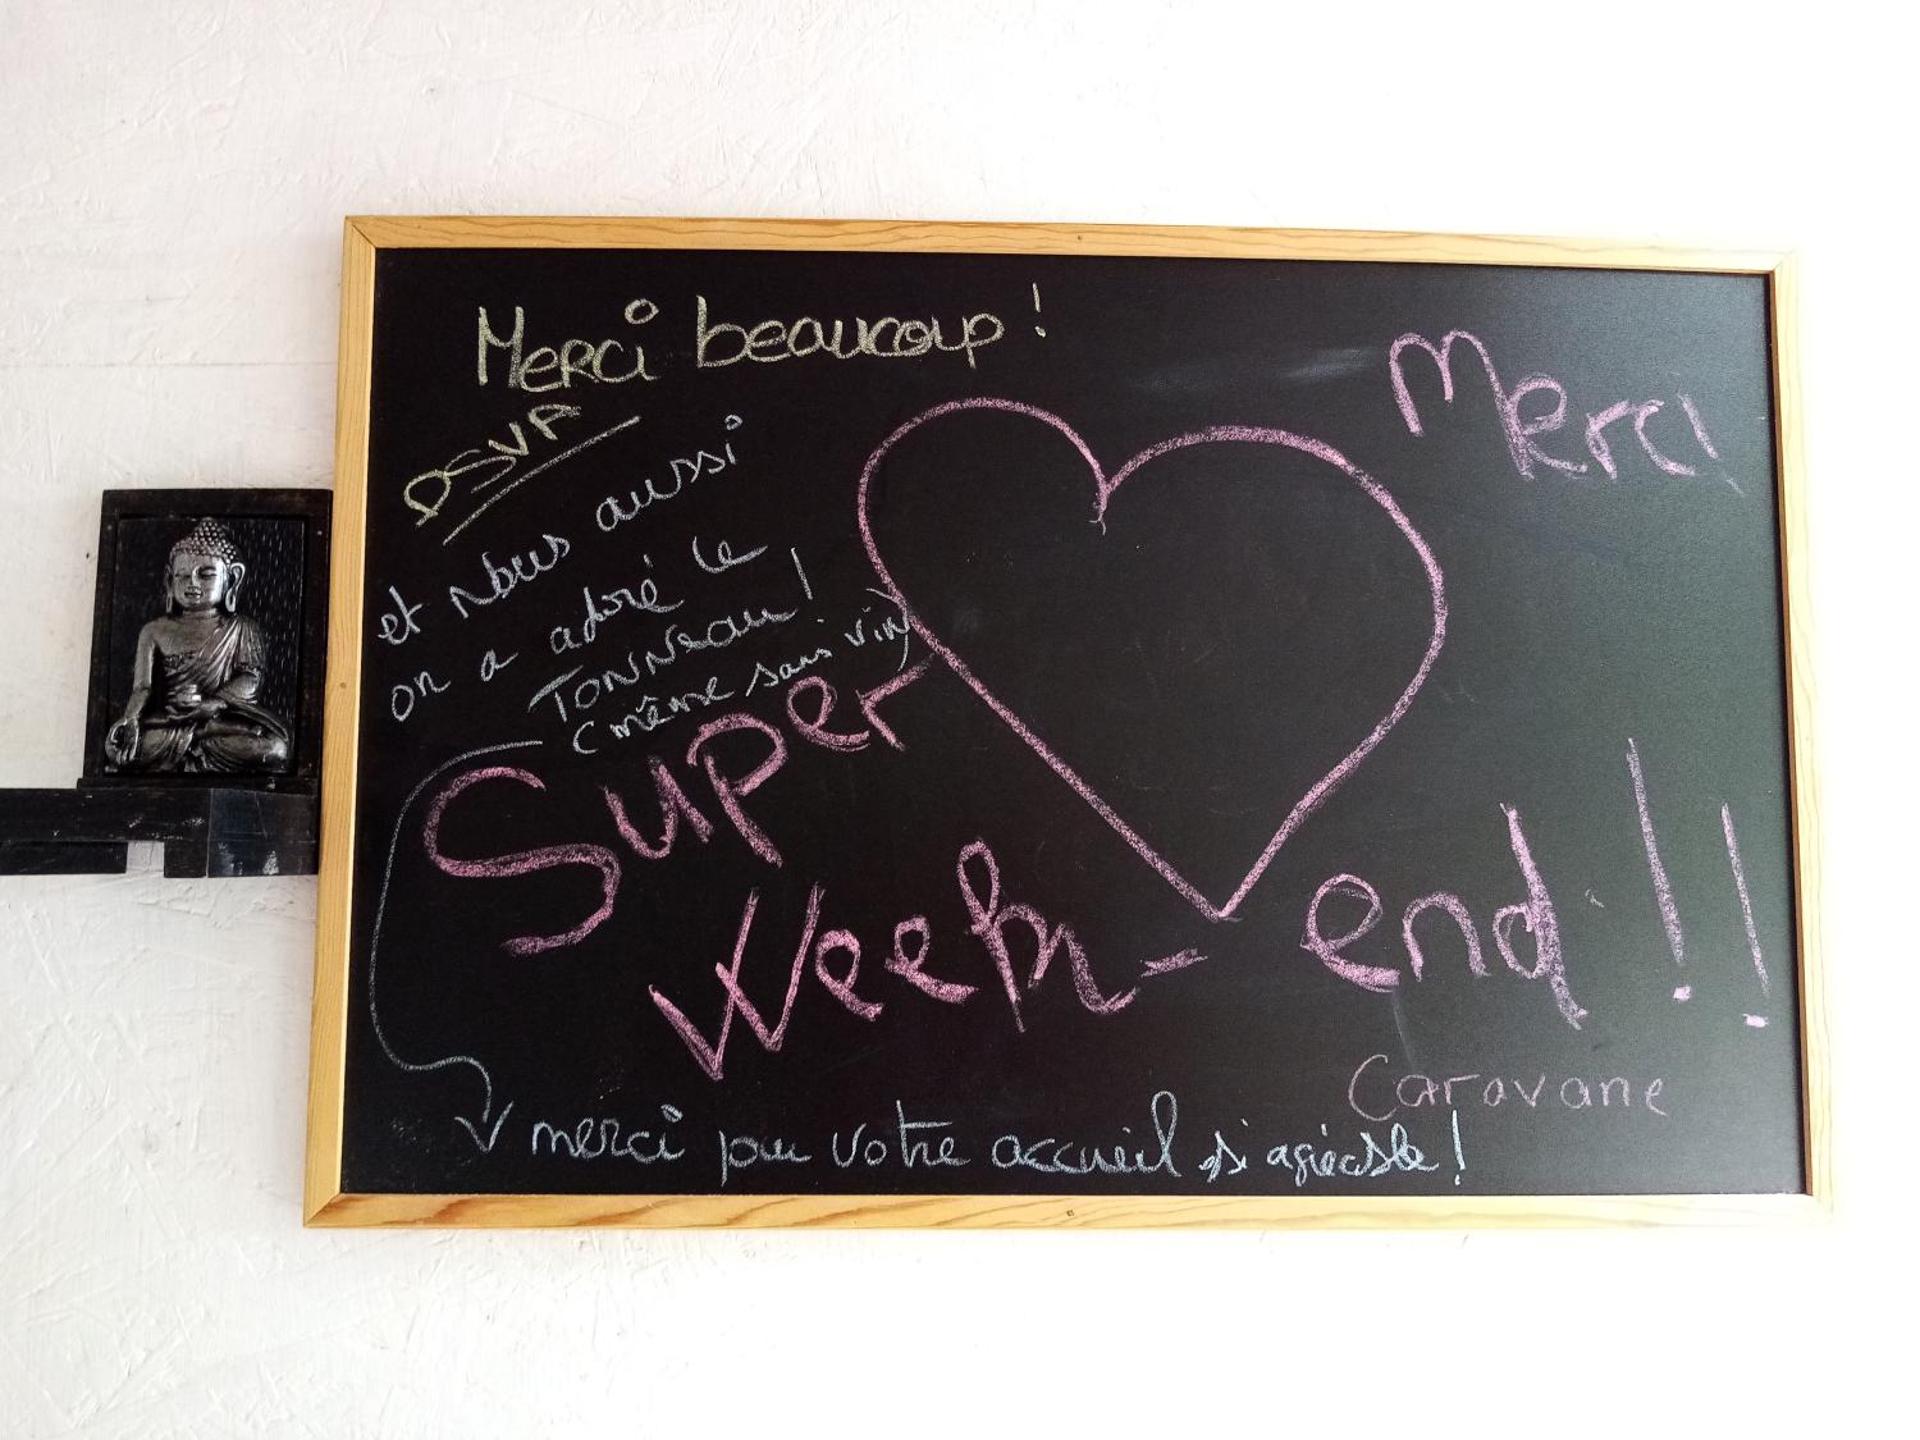 Merci beaucoup !
DSVF
et nous aussi
on a adoré le
Tonneau !
(même sans vin)
Merci
Super
Week-end !!
Caravane
merci pour votre accueil si agréable !